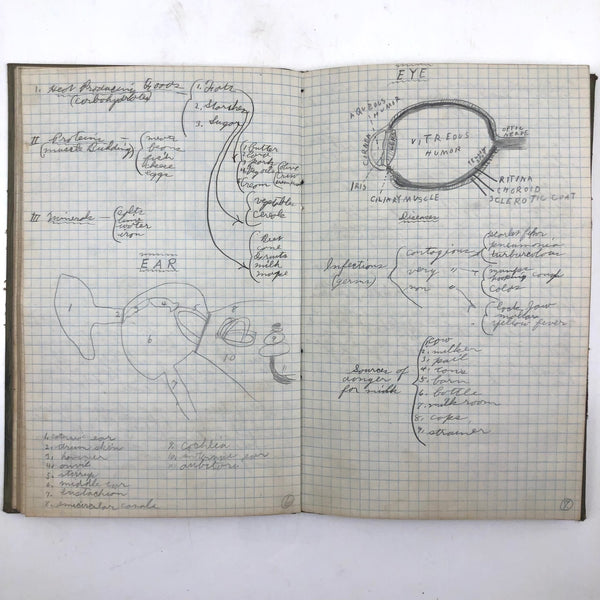 I. Heat Producing Foods
(carbohydrates)
1. Fats
2. Starches
3. Sugar
II Proteins –
(muscle Building)
meats
beans
fish
cheese
eggs
butter
lard
cream
vegetables
cereals
Beet
cane
milk
maple
III Minerals –
salts
lime
water
iron
EAR
1
2
3
4
5
6
7
8
9
10
11
2. drum skin
3. hammer
4. anvil
5. stirrup
6. middle ear
7. eustachian
8. semicircular canals
9. cochlea
6
EYE
AQUEOUS
HUMOR
CORNEA
LENS
IRIS
VITREOUS
HUMOR
CILIARY MUSCLE
OPTIC
NERVE
RETINA
CHOROID
SCLEROTIC COAT
Diseases
Infections
(germs)
contagious
very "
non "
scarlet fever
pneumonia
mumps
whooping cough
colds
lock jaw
yellow fever
Sources of
danger
for milk
1. cow
2. milker
3. pail
4. cans
5. barn
6. bottle
7. milk room
8. caps
9. strainer
7